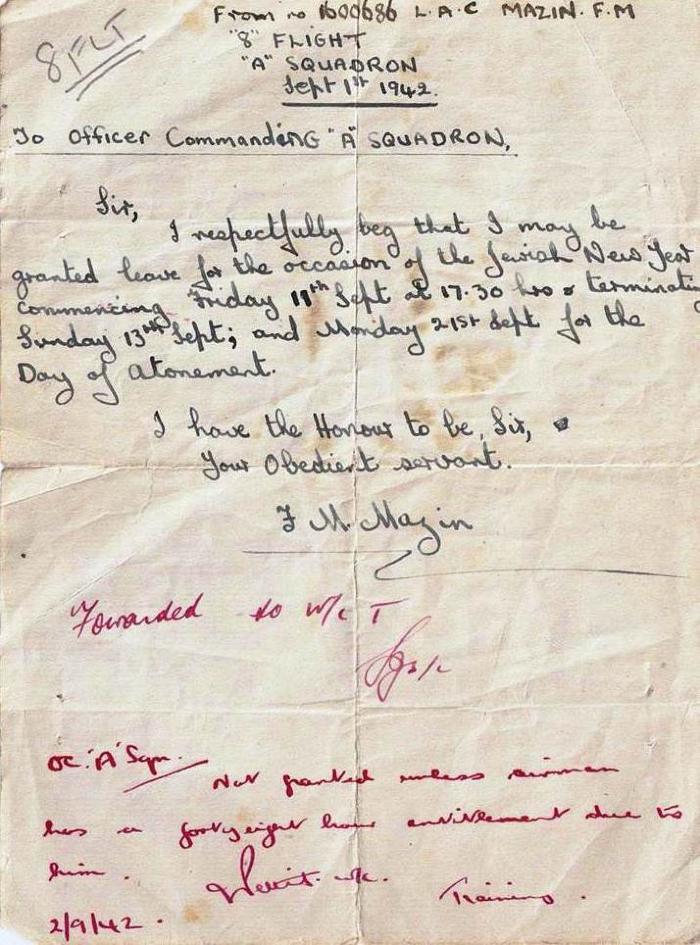 From no 1600686 L.A.C MAZIN. F.M
8 FLT
"8" FLIGHT
"A" SQUADRON
Sept 1st 1942.
To Officer Commanding "A" SQUADRON,
Sir,
I respectfully beg that I may be
granted leave for the occasion of the Jewish New Year
commencing Friday 11th Sept at 17.30 hrs & terminatin
Sunday 13th Sept; and Monday 21st Sept for the
Day of Atonement.
I have the Honour to be, Sir,
Your Obedient servant.
F M. Mazin
Forwarded to W/C T
S/L
OC. 'A' Sqn.
Not granted unless airman
has a fortyeight hour entitlement due to
him.
W/C.
Training.
2/9/42.